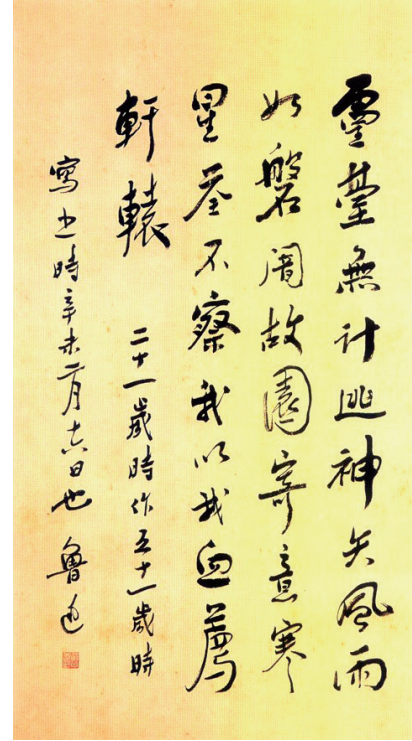 靈臺無計逃神矢風雨
如磐闇故園寄意寒
星荃不察我以我血薦
軒轅
二十一歲時作五十一歲時
寫之時辛未二月十六日也 魯迅